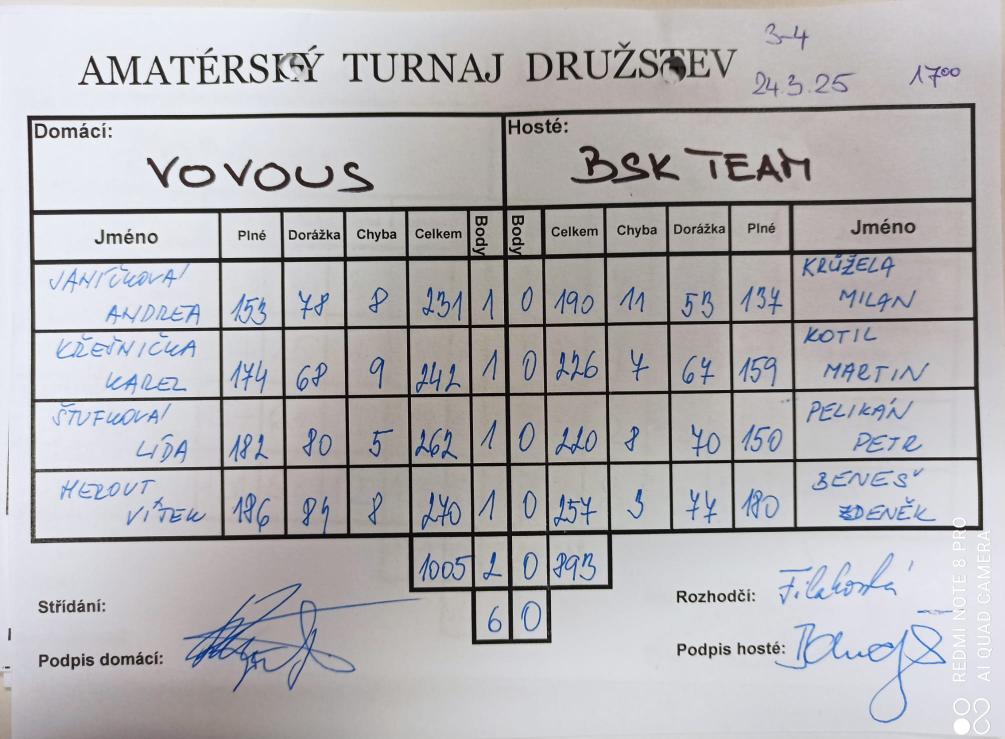 3-4
AMATÉRSKÝ TURNAJ DRUŽSTEV
24.3.25 17⁰⁰
Domácí: Hosté:
VOVOUS BSK TEAM
Jméno Plné Dorážka Chyba Celkem Body Body Celkem Chyba Dorážka Plné Jméno
JANÍČKOVÁ KRŮŽELA
ANDREA 153 78 8 231 1 0 190 11 53 137 MILAN
KŘEŠNIČKA KOTIL
KAREL 174 68 9 242 1 0 226 7 67 159 MARTIN
ŠTUFKOVÁ PELIKÁN
LÍĎA 182 80 5 262 1 0 220 8 70 150 PETR
HEROUT BENEŠ
VÍTEK 186 84 8 270 1 0 257 3 77 180 ZDENĚK
1005 2 0 893
Střídání: 6 0 Rozhodčí:
Podpis domácí: Podpis hosté:
REDMI NOTE 8 PRO
AI QUAD CAMERA